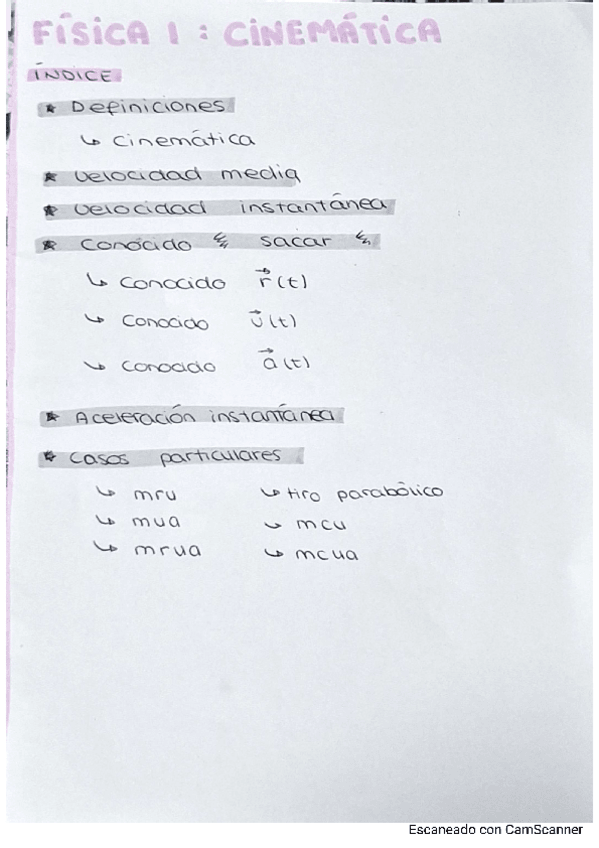 FÍSICA 1 : CINEMÁTICA
ÍNDICE
* Definiciones
↳ cinemática
* velocidad media
* velocidad instantánea
* Conocido sacar
↳ conocido r⃗(t)
↳ conocido v⃗(t)
↳ conocido a⃗(t)
* Aceleración instantánea
* casos particulares
↳ mru ↳ tiro parabólico
↳ mua ↳ mcu
↳ mrua ↳ mcua
Escaneado con CamScanner